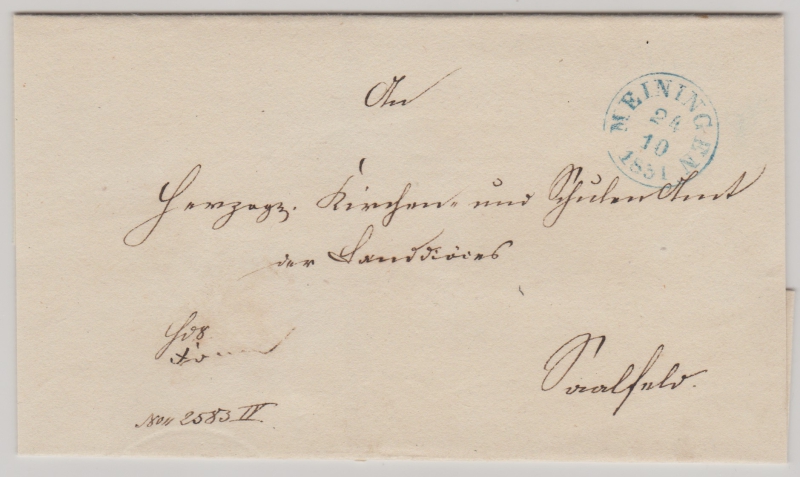 An
MEININGEN
24
10
1851
Herzogl. Kirchen- und Schulen Amt
der Landdiöces
Saalfeld.
2583 IV.